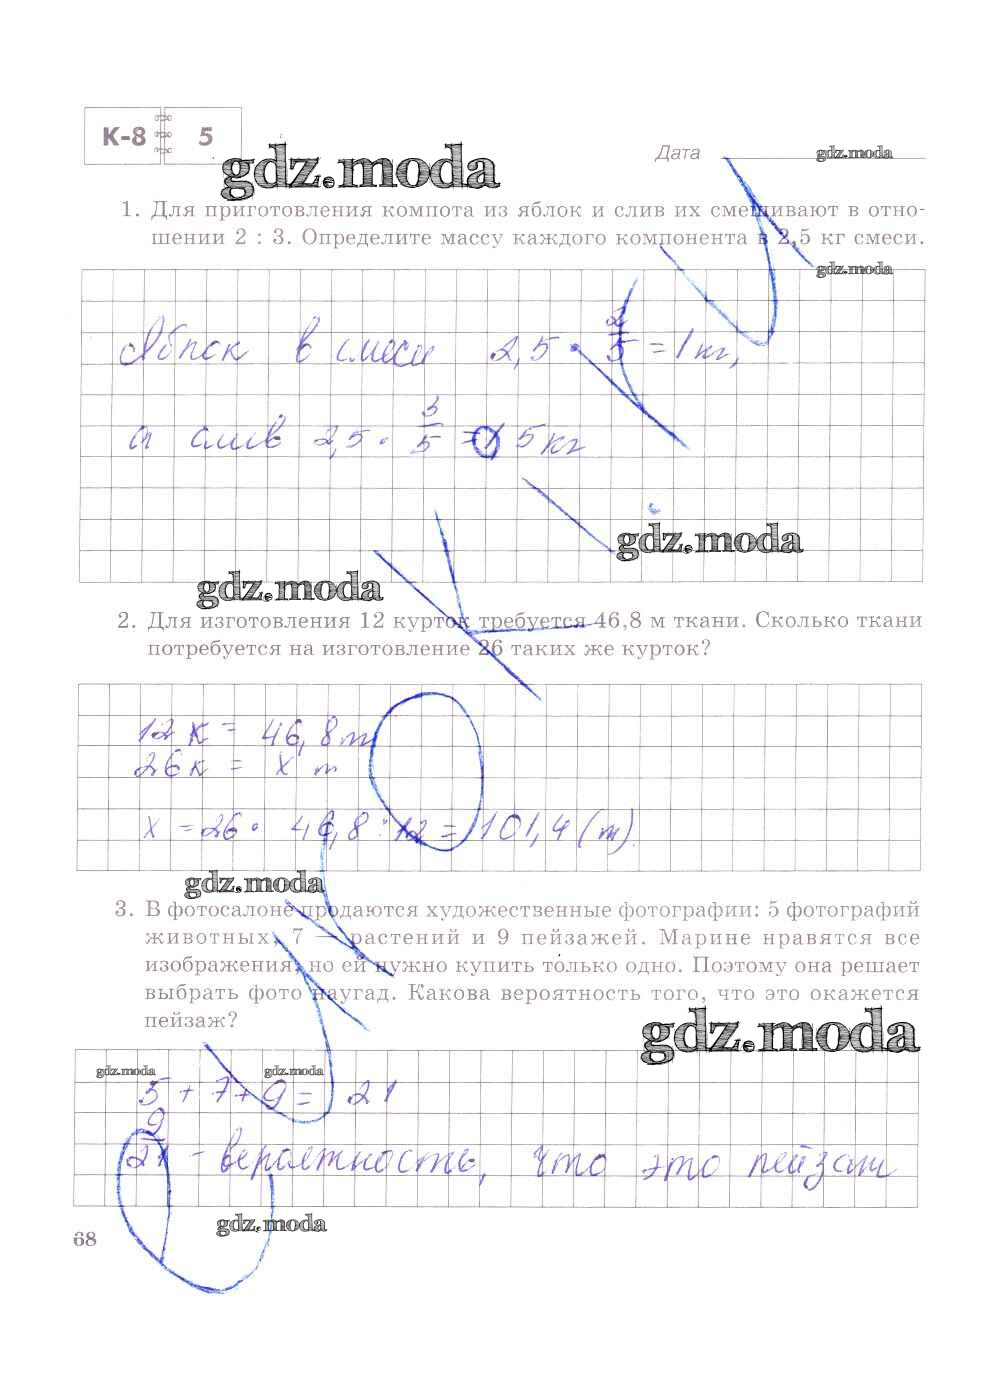 К-8 5
gdz.moda
Дата gdz.moda
1. Для приготовления компота из яблок и слив их смешивают в отно-
шении 2 : 3. Определите массу каждого компонента в 2,5 кг смеси.
gdz.moda
Яблок в смеси 2,5 · 2/5 = 1 кг,
а слив 2,5 · 3/5 = 1,5 кг
gdz.moda
gdz.moda
2. Для изготовления 12 курток требуется 46,8 м ткани. Сколько ткани
потребуется на изготовление 26 таких же курток?
12 к = 46,8 м
26 к = х м
х = 26 · 46,8 : 12 = 101,4 (м).
gdz.moda
3. В фотосалоне продаются художественные фотографии: 5 фотографий
животных, 7 — растений и 9 пейзажей. Марине нравятся все
изображения, но ей нужно купить только одно. Поэтому она решает
выбрать фото наугад. Какова вероятность того, что это окажется
пейзаж?
gdz.moda
gdz.moda gdz.moda
5 + 7 + 9 = 21
9/21 - вероятность, что это пейзаж
gdz.moda
68